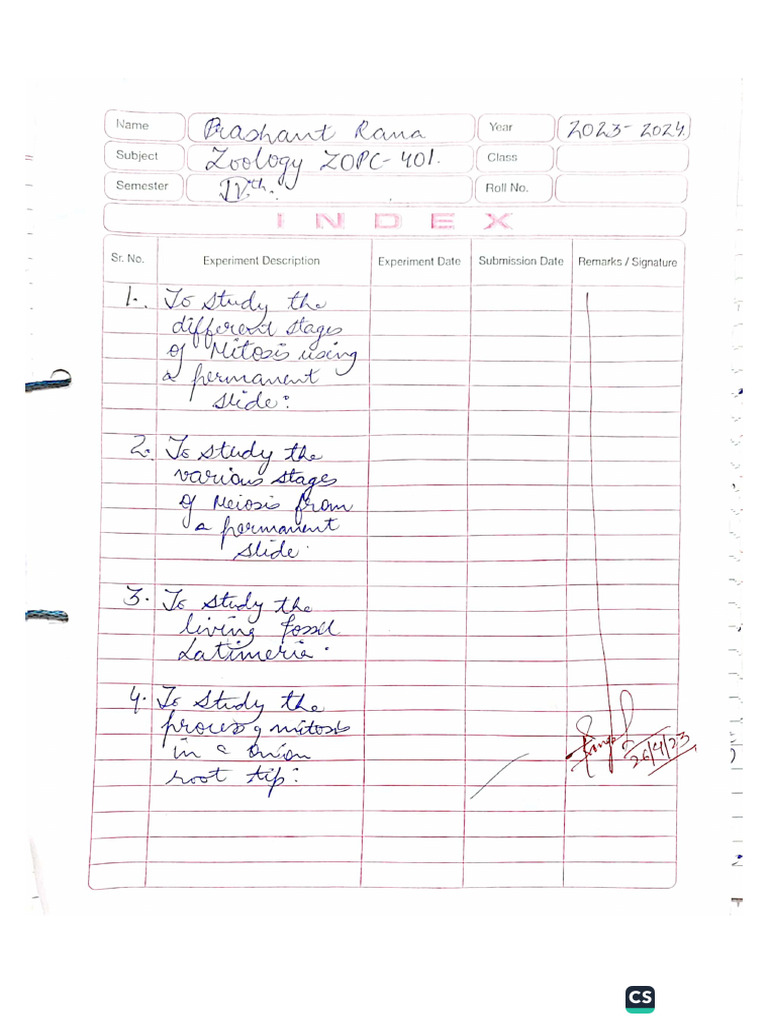 Name Prashant Rana Year 2023-2024.
Subject Zoology ZOPC-401. Class
Semester IVth. Roll No.
INDEX
Sr. No. Experiment Description Experiment Date Submission Date Remarks / Signature
1. To study the
different stages
of Mitosis using
a permanent
slide:
2. To study the
various stages
of Meiosis from
a permanent
slide.
3. To study the
living fossil
Latimeria.
4. To study the
process of mitosis
in a onion
root tip:
26/4/23
CS